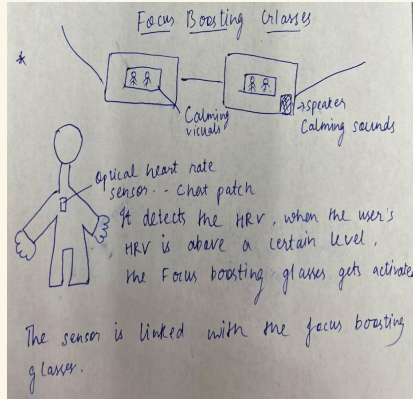 Focus Boosting Glasses
*
Calming
visuals
→ speaker
Calming sounds
optical heart rate
sensor - - Chest patch
It detects the HRV, when the user's
HRV is above a certain level,
the Focus boosting glasses gets activate
The sensor is linked with the focus boosting
glasses.